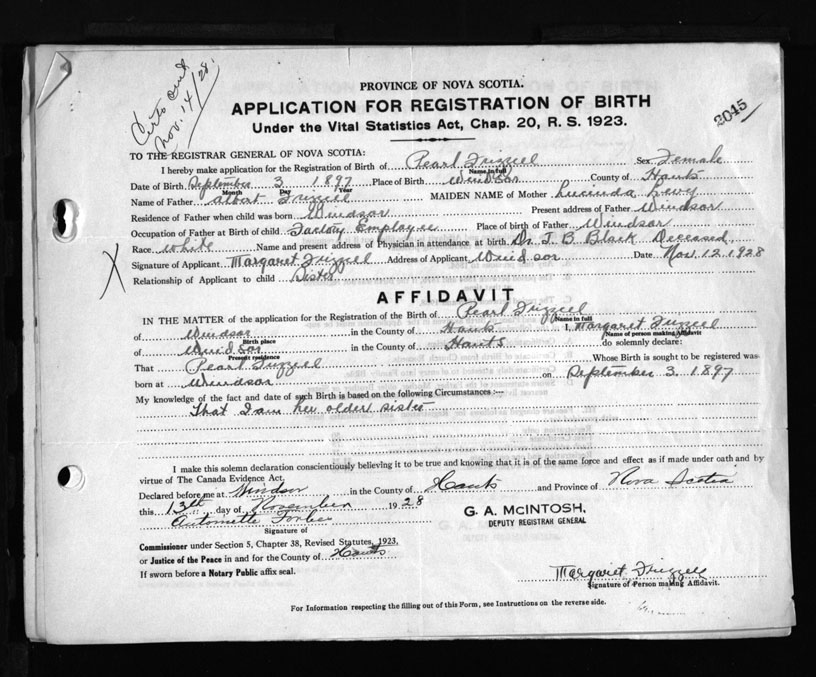 Nov. 14/28.
2045
PROVINCE OF NOVA SCOTIA.
APPLICATION FOR REGISTRATION OF BIRTH
Under the Vital Statistics Act, Chap. 20, R. S. 1923.
TO THE REGISTRAR GENERAL OF NOVA SCOTIA:
I hereby make application for the Registration of Birth of Pearl Frizzell Sex Female
Name in full
Date of Birth September 3 1897 Place of Birth Windsor County of Hants
Month Day Year
Name of Father Albert Frizzell MAIDEN NAME of Mother Lucinda
Residence of Father when child was born Windsor Present address of Father Windsor
Occupation of Father at Birth of child Factory Employee Place of birth of Father Windsor
Race White Name and present address of Physician in attendance at birth Dr. J. B. Black Deceased
X Signature of Applicant Margaret Frizzell Address of Applicant Windsor Date Nov. 12. 1928
Relationship of Applicant to child Sister
AFFIDAVIT
IN THE MATTER of the application for the Registration of the Birth of Pearl Frizzell
Name in full
of Windsor in the County of Hants I, Margaret Frizzell
Birth place Name of person making Affidavit
of Windsor in the County of Hants do solemnly declare:
Present residence
That Pearl Frizzell Whose Birth is sought to be registered was
born at Windsor on September 3. 1897
My knowledge of the fact and date of such Birth is based on the following Circumstances :—
That I am her older sister
I make this solemn declaration conscientiously believing it to be true and knowing that it is of the same force and effect as if made under oath and by
virtue of The Canada Evidence Act.
Declared before me at Windsor in the County of Hants and Province of Nova Scotia
this 13th day of November 1928
G. A. McINTOSH,
DEPUTY REGISTRAR GENERAL
Antoinette Forbes
Signature of
Commissioner under Section 5, Chapter 38, Revised Statutes, 1923,
or Justice of the Peace in and for the County of Hants
If sworn before a Notary Public affix seal.
Margaret Frizzell
Signature of Person making Affidavit.
For Information respecting the filling out of this Form, see Instructions on the reverse side.